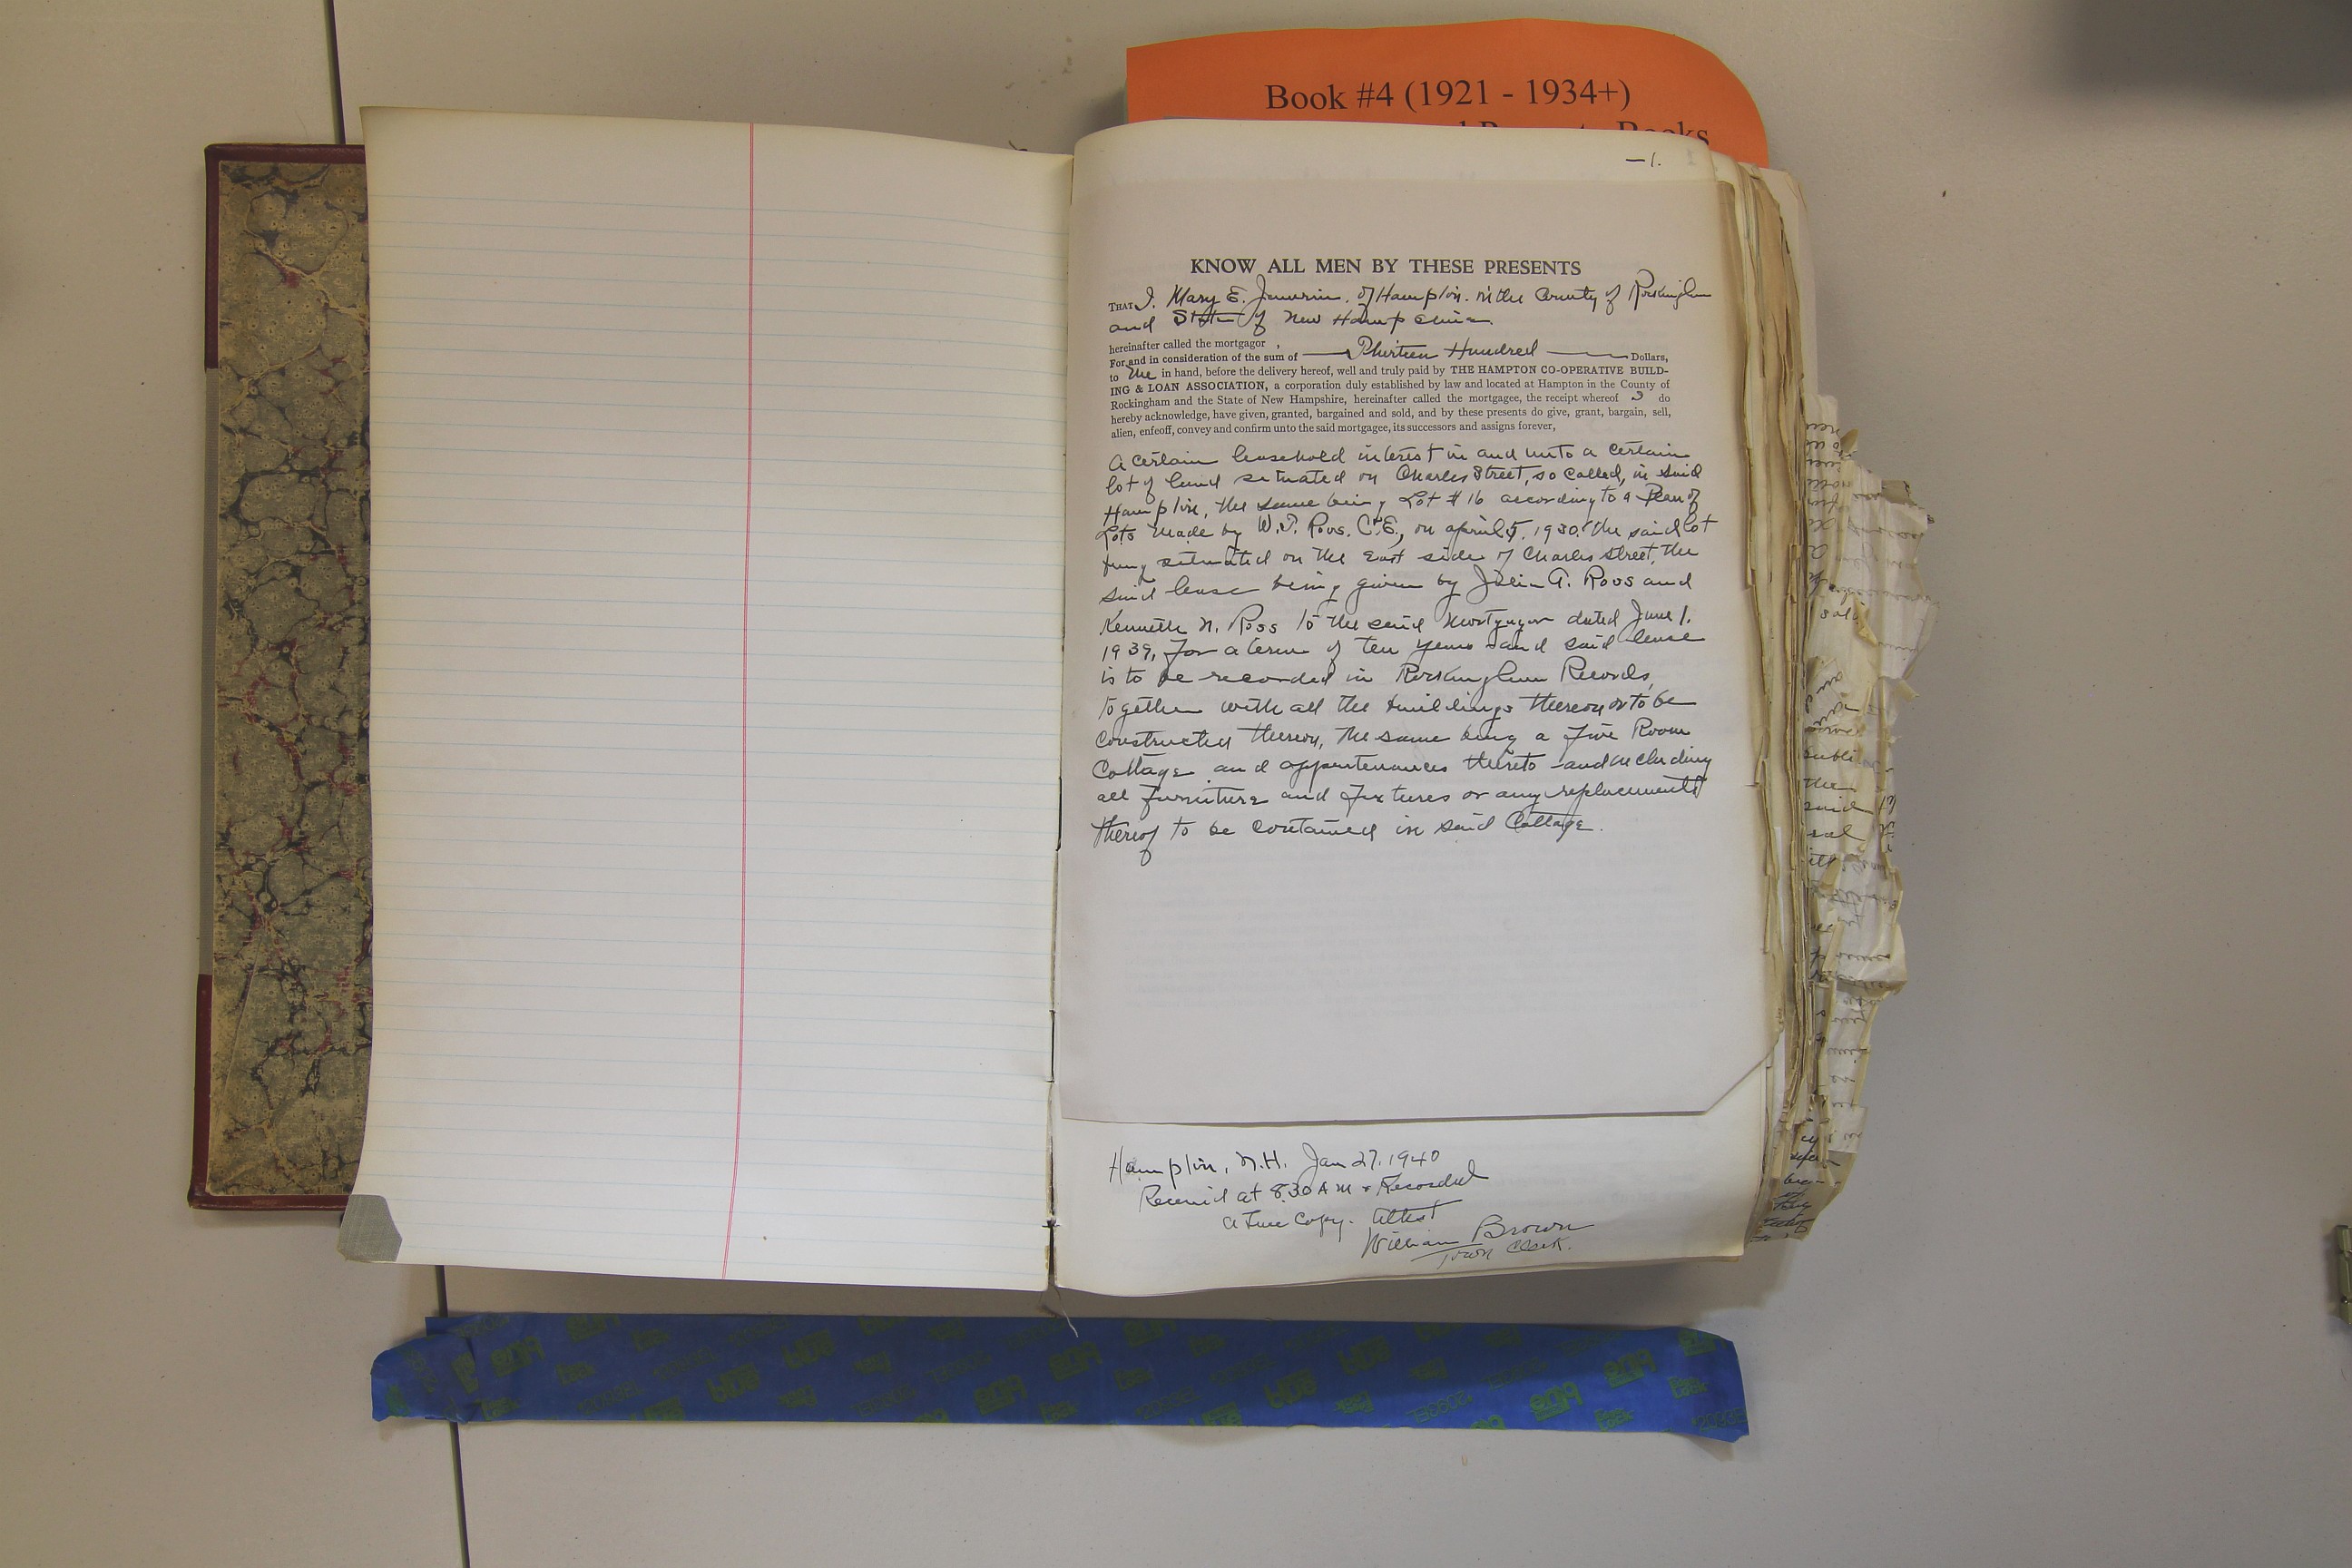 Book #4 (1921 - 1934+)
—1.
KNOW ALL MEN BY THESE PRESENTS
THAT I. Mary E. Janvrin. of Hampton. in the County of Rockingham
and State of New Hampshire.
hereinafter called the mortgagor ,
For and in consideration of the sum of —— Thirteen Hundred —— Dollars,
to me in hand, before the delivery hereof, well and truly paid by THE HAMPTON CO-OPERATIVE BUILD-
ING & LOAN ASSOCIATION, a corporation duly established by law and located at Hampton in the County of
Rockingham and the State of New Hampshire, hereinafter called the mortgagee, the receipt whereof I do
hereby acknowledge, have given, granted, bargained and sold, and by these presents do give, grant, bargain, sell,
alien, enfeoff, convey and confirm unto the said mortgagee, its successors and assigns forever,
A certain leasehold interest in and unto a certain
lot of land situated on Charles Street, so called, in said
Hampton, the same being Lot # 16 according to a Plan of
Lots made by W.T. Ross. C.E., on april 5, 1930. the said lot
being situated on the East side of Charles Street, the
said lease being given by Julia A. Ross and
Kenneth N. Ross to the said mortgagor dated June 1.
1939, for a term of ten years and said lease
is to be recorded in Rockingham Records,
together with all the buildings thereon or to be
constructed thereon, the same being a Five Room
Cottage and appurtenances thereto and including
all furniture and fixtures or any replacements
thereof to be contained in said Cottage.
Hampton, N.H. Jan 27, 1940
Received at 8.30 A M & Recorded
a true copy. Attest
William Brown
Town Clerk.